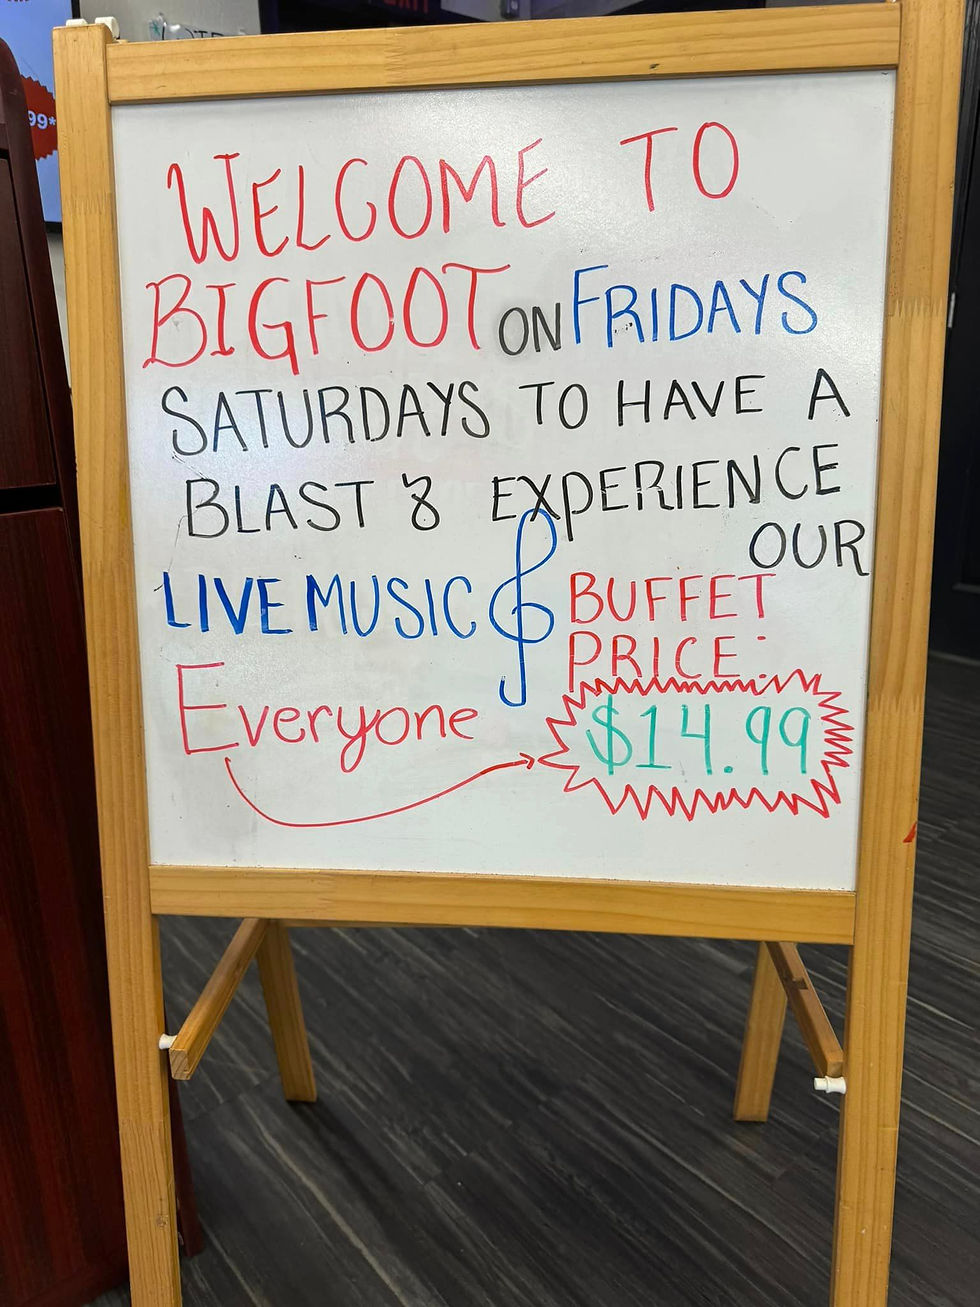 EXIT
99*
WELCOME TO
BIGFOOT ON FRIDAYS
SATURDAYS TO HAVE A
BLAST & EXPERIENCE
OUR
LIVE MUSIC
BUFFET
PRICE:
Everyone
$14.99